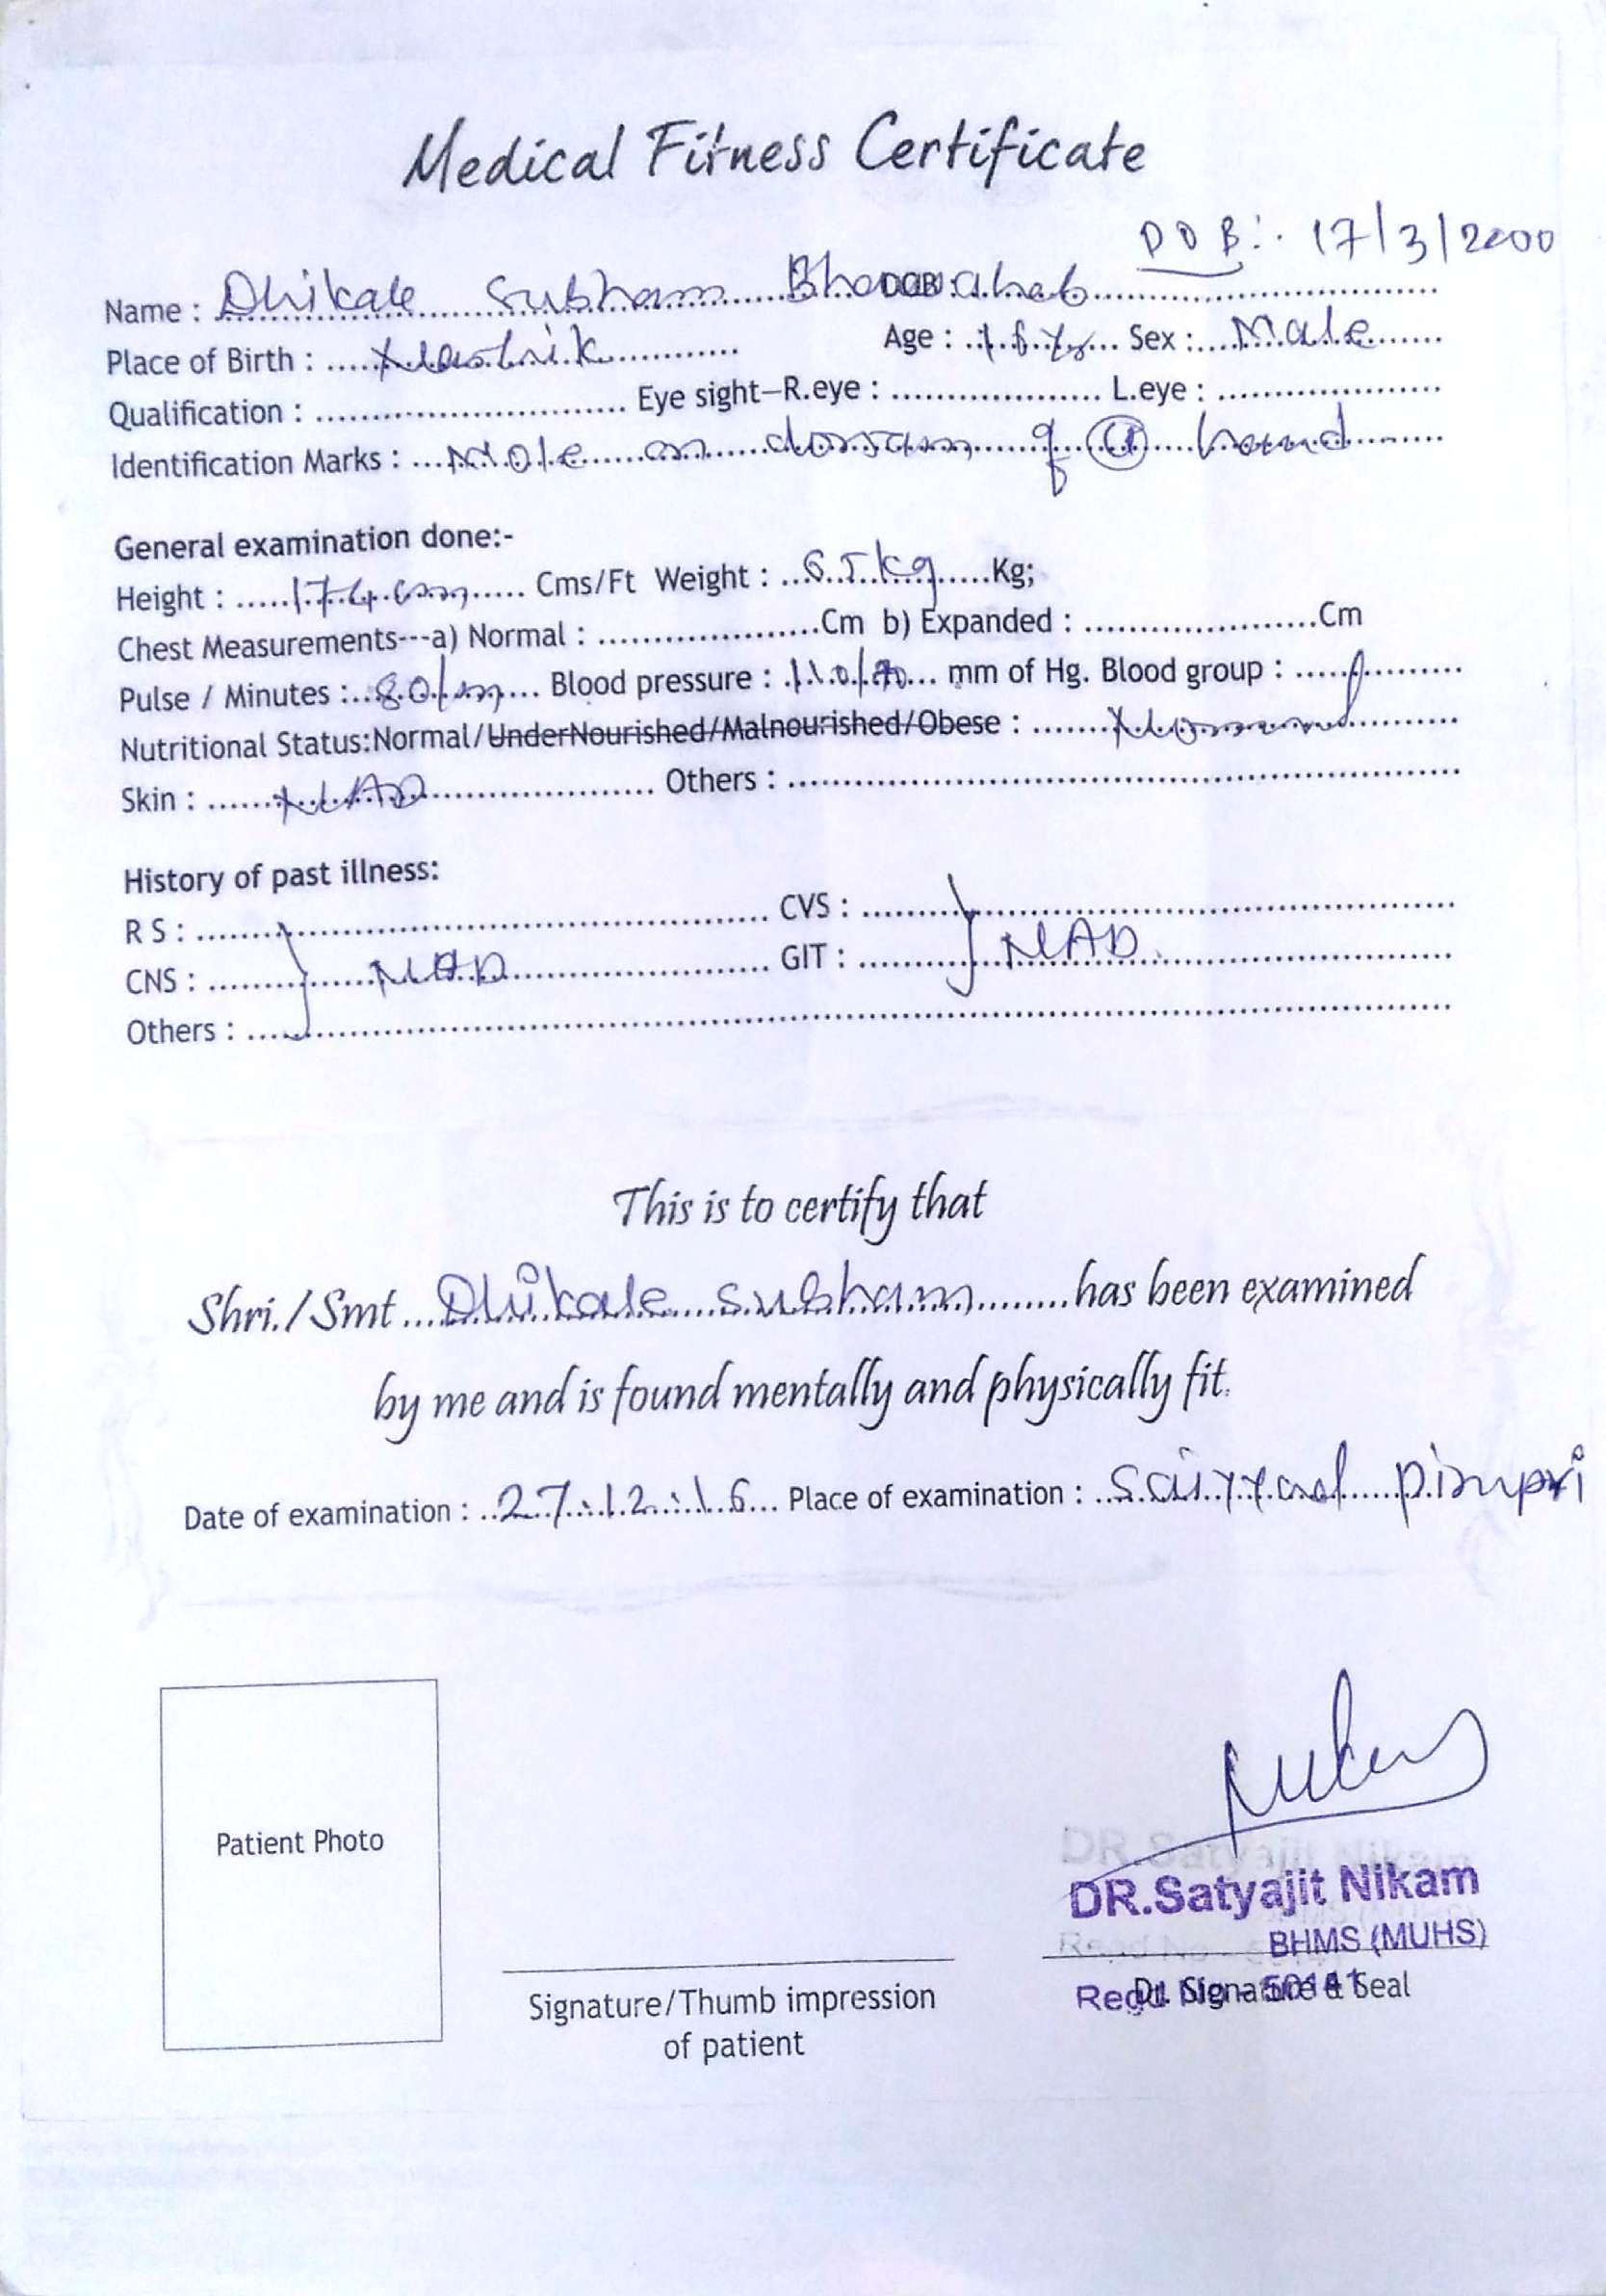 Medical Fitness Certificate
DOB:. 17/3/2000
Name : Dhikale Subham Bhausaheb DOB
Place of Birth : Nashik Age : Sex : Male
Qualification : Eye sight-R.eye : L.eye :
Identification Marks : Mole on dorsum of hand
General examination done:-
Height : 174 cm Cms/Ft Weight : 65kg Kg;
Chest Measurements---a) Normal : Cm b) Expanded : Cm
Pulse / Minutes : 80/m Blood pressure : 110/70 mm of Hg. Blood group :
Nutritional Status:Normal/UnderNourished/Malnourished/Obese : Normal
Skin : NAD Others :
History of past illness:
R S : CVS :
CNS : NAD GIT : NAD
Others :
This is to certify that
Shri./Smt Dhikale Subham has been examined
by me and is found mentally and physically fit.
Date of examination : 27:12:16 Place of examination : Saiyyad Pimpri
Patient Photo
DR.Satyajit Nikam
BHMS (MUHS)
Regd No - Dr. Signature & Seal
Signature/Thumb impression
of patient